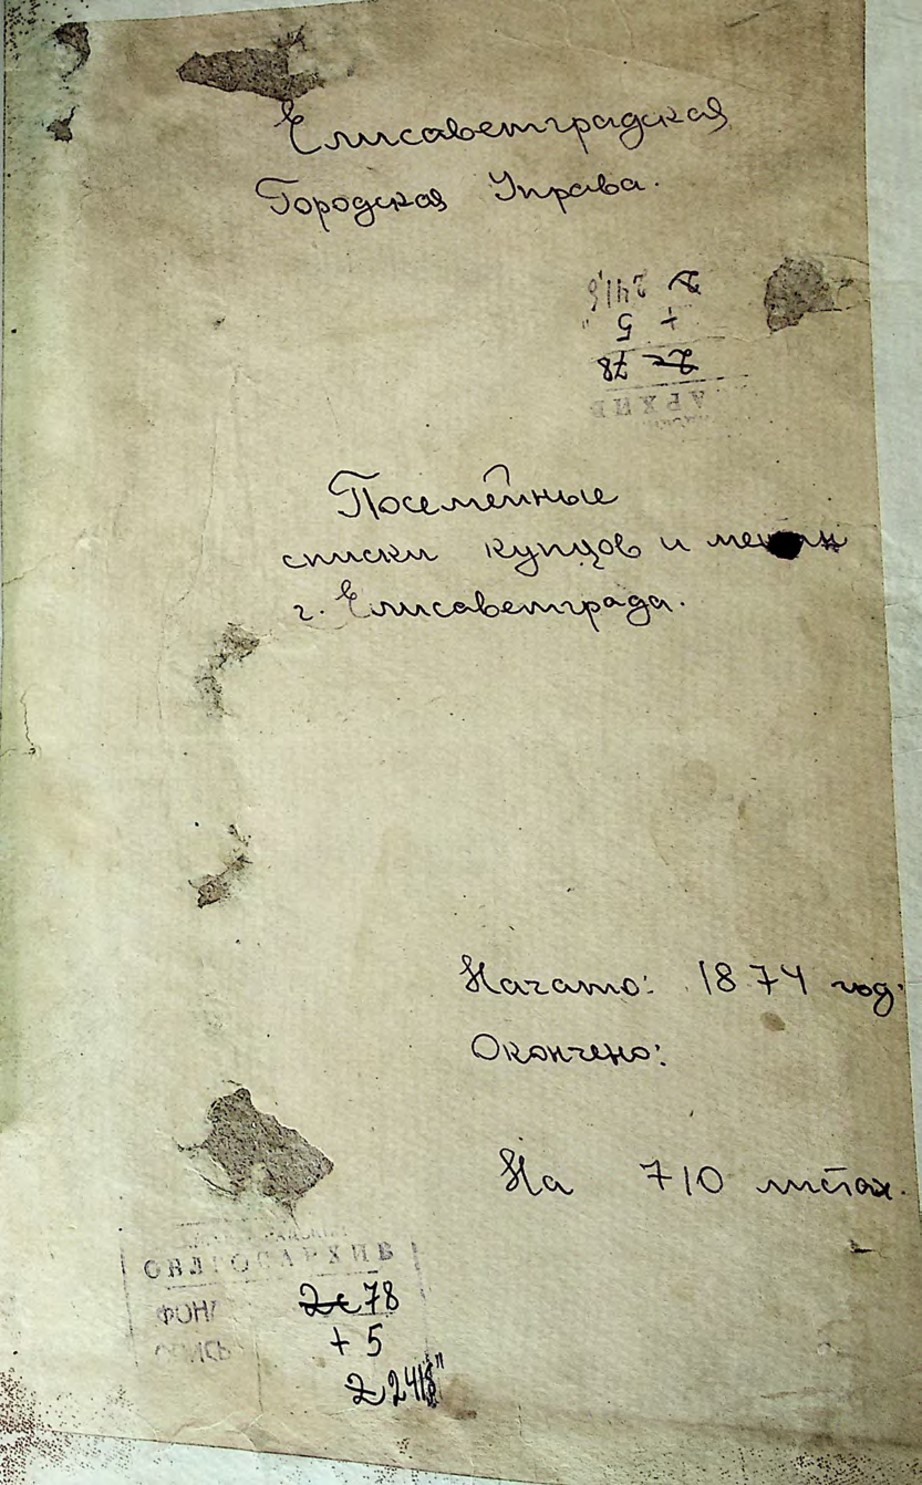 Елисаветградская
Городская Управа.
Посемейные
списки купцов и
г. Елисаветграда.
Начато: 1874 год.
Окончено:
На 710 листах.
ОБЛГОСАРХИВ
ФОНД 78
ОПИСЬ + 5